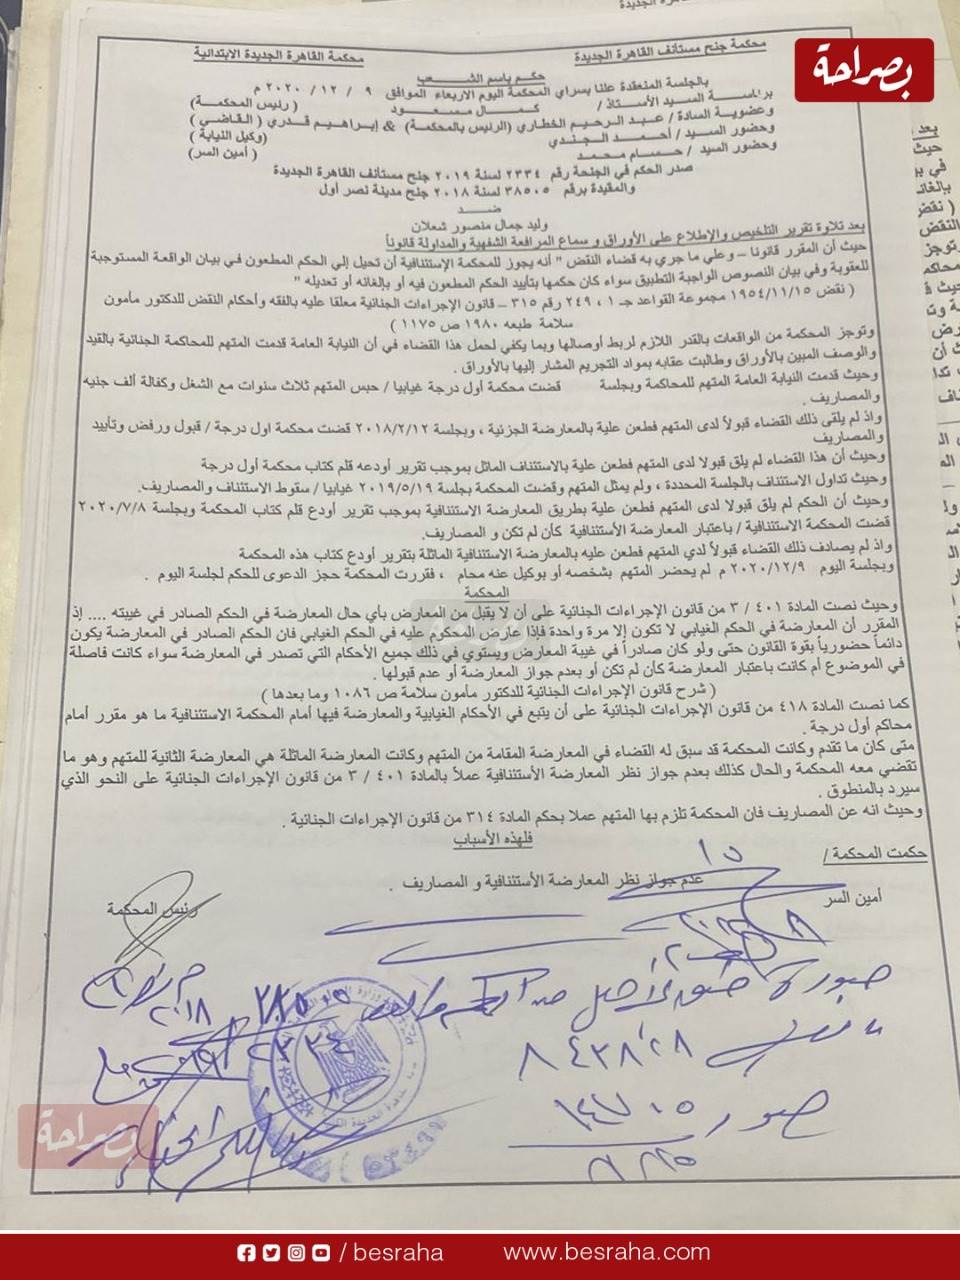 بصراحة
محكمة جنح مستأنف القاهرة الجديدة
محكمة القاهرة الجديدة الابتدائية
حكم باسم الشعب
بالجلسة المنعقدة علنا بسراي المحكمة اليوم الاربعاء الموافق ٩ / ١٢ / ٢٠٢٠ م
برئاسة السيد الأستاذ / كمال مسعود ( رئيس المحكمة )
وعضوية السادة / عبد الرحيم الخطاري (الرئيس بالمحكمة) & إبراهيم قدري ( القاضي )
وحضور السيد / أحمد الجندي (وكيل النيابة )
وحضور السيد / حسام محمد ( أمين السر )
صدر الحكم في الجنحة رقم ٢٣٣٤ لسنة ٢٠١٩ جنح مستأنف القاهرة الجديدة
والمقيدة برقم ٣٨٥٠٥ لسنة ٢٠١٨ جنح مدينة نصر أول
ضد
وليد جمال منصور شعلان
بعد تلاوة تقرير التلخيص والإطلاع على الأوراق و سماع المرافعة الشفهية والمداولة قانوناً
حيث أن المقرر قانونا – وعلي ما جري به قضاء النقض " أنه يجوز للمحكمة الإستئنافية أن تحيل إلي الحكم المطعون في بيان الواقعة المستوجبة
للعقوبة وفي بيان النصوص الواجبة التطبيق سواء كان حكمها بتأييد الحكم المطعون فيه أو بإلغائه أو تعديله "
( نقض ١٩٥٤/١١/١٥ مجموعة القواعد جـ ١ ، ٢٤٩ رقم ٣١٥ – قانون الإجراءات الجنائية معلقا عليه بالفقه وأحكام النقض للدكتور مأمون
سلامة طبعه ١٩٨٠ ص ١١٧٥ )
وتوجز المحكمة من الواقعات بالقدر اللازم لربط أوصالها وبما يكفي لحمل هذا القضاء في أن النيابة العامة قدمت المتهم للمحاكمة الجنائية بالقيد
والوصف المبين بالأوراق وطالبت عقابه بمواد التجريم المشار إليها بالأوراق .
وحيث قدمت النيابة العامة المتهم للمحاكمة وبجلسة قضت محكمة أول درجة غيابيا / حبس المتهم ثلاث سنوات مع الشغل وكفالة ألف جنيه
والمصاريف .
واذ لم يلقى ذلك القضاء قبولاً لدى المتهم فطعن علية بالمعارضة الجزئية ، وبجلسة ٢٠١٨/٢/١٢ قضت محكمة اول درجة / قبول ورفض وتأييد
والمصاريف
وحيث أن هذا القضاء لم يلق قبولا لدى المتهم فطعن علية بالاستئناف الماثل بموجب تقرير أودعه قلم كتاب محكمة أول درجة
وحيث تداول الاستئناف بالجلسة المحددة ، ولم يمثل المتهم وقضت المحكمة بجلسة ٢٠١٩/٥/١٩ غيابيا / سقوط الاستئناف والمصاريف.
وحيث أن الحكم لم يلق قبولا لدى المتهم فطعن علية بطريق المعارضة الاستئنافية بموجب تقرير أودع قلم كتاب المحكمة وبجلسة ٢٠٢٠/٧/٨
قضت المحكمة الاستئنافية / باعتبار المعارضة الأستئنافية كأن لم تكن و المصاريف.
واذ لم يصادف ذلك القضاء قبولاً لدي المتهم فطعن عليه بالمعارضة الاستئنافية الماثلة بتقرير أودع كتاب هذه المحكمة
وبجلسة اليوم ٢٠٢٠/١٢/٩ م لم يحضر المتهم بشخصه أو بوكيل عنه محام ، فقررت المحكمة حجز الدعوى للحكم لجلسة اليوم .
المحكمة
وحيث نصت المادة ٤٠١ / ٣ من قانون الإجراءات الجنائية على أن لا يقبل من المعارض بأي حال المعارضة في الحكم الصادر في غيبته .... إذ
المقرر أن المعارضة في الحكم الغيابي لا تكون إلا مرة واحدة فإذا عارض المحكوم عليه في الحكم الغيابي فان الحكم الصادر في المعارضة يكون
دائماً حضورياً بقوة القانون حتى ولو كان صادراً في غيبة المعارض ويستوي في ذلك جميع الأحكام التي تصدر في المعارضة سواء كانت فاصلة
في الموضوع أم كانت باعتبار المعارضة كأن لم تكن أو بعدم جواز المعارضة أو عدم قبولها .
( شرح قانون الإجراءات الجنائية للدكتور مأمون سلامة ص ١٠٨٦ وما بعدها )
كما نصت المادة ٤١٨ من قانون الإجراءات الجنائية على أن يتبع في الأحكام الغيابية والمعارضة فيها أمام المحكمة الاستئنافية ما هو مقرر أمام
محاكم أول درجة .
متى كان ما تقدم وكانت المحكمة قد سبق له القضاء في المعارضة المقامة من المتهم وكانت المعارضة الماثلة هي المعارضة الثانية للمتهم وهو ما
تقضي معه المحكمة والحال كذلك بعدم جواز نظر المعارضة الأستئنافية عملاً بالمادة ٤٠١ / ٣ من قانون الإجراءات الجنائية على النحو الذي
سيرد بالمنطوق .
وحيث انه عن المصاريف فان المحكمة تلزم بها المتهم عملا بحكم المادة ٣١٤ من قانون الإجراءات الجنائية .
فلهذه الأسباب
حكمت المحكمة /
عدم جواز نظر المعارضة الأستئنافية و المصاريف .
أمين السر
رئيس المحكمة
بصراحة
/ besraha
www.besraha.com